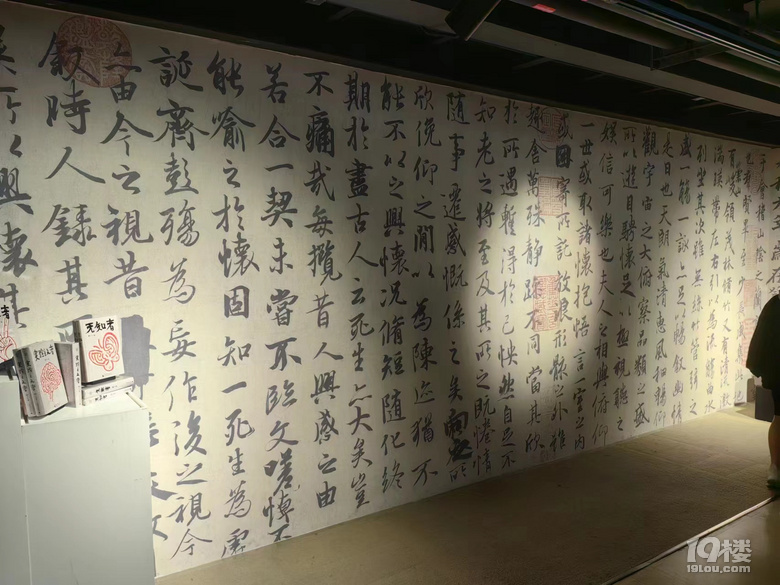 于會稽山陰之
也群賢畢至
有崇山峻領茂林脩竹又有清流激
湍暎帶左右引以為流觴曲水
列坐其次雖無絲竹管弦之
盛一觴一詠亦足以暢敘幽情
是日也天朗氣清惠風和暢仰
觀宇宙之大俯察品類之盛
所以遊目騁懷足以極視聽之
娛信可樂也夫人之相與俯仰
一世或取諸懷抱悟言一室之內
或因寄所託放浪形骸之外雖
趣舍萬殊靜躁不同當其欣
於所遇暫得於己怏然自足不
知老之將至及其所之既惓情
隨事遷感慨係之矣向之所
欣俛仰之閒以為陳迹猶不
能不以之興懷況脩短隨化終
期於盡古人云死生亦大矣豈
不痛哉每攬昔人興感之由
若合一契未嘗不臨文嗟悼不
能喻之於懷固知一死生為虛
誕齊彭殤為妄作後之視今
亦由今之視昔
敘時人錄其所
異所以興懷其
无知者
19楼
19lou.com